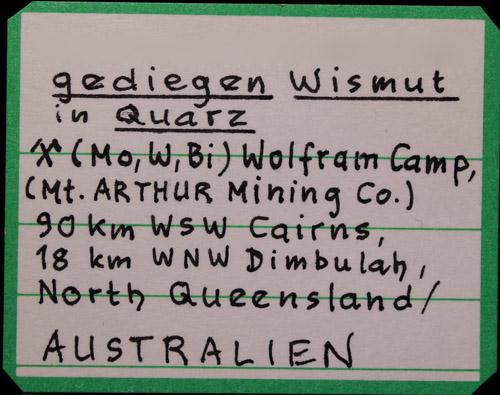 gediegen Wismut
in Quarz
⚒ (Mo, W, Bi) Wolfram Camp,
(Mt. ARTHUR Mining Co.)
90 km WSW Cairns,
18 km WNW Dimbulah,
North Queensland/
AUSTRALIEN